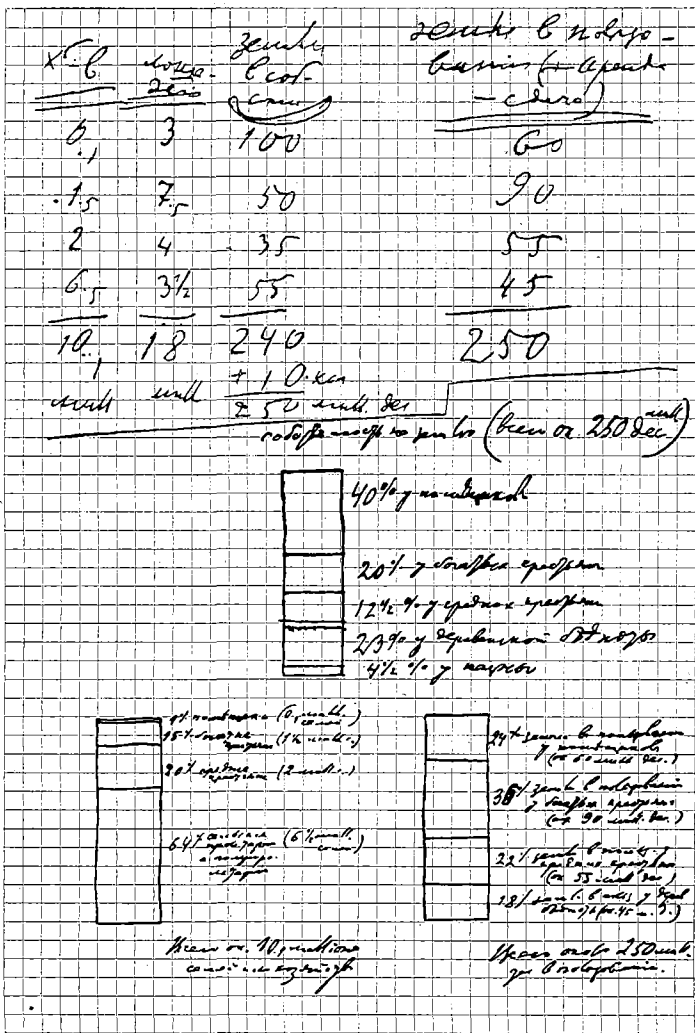 х–в лоша- земли земли в пользо-
дей в соб- вании (+ аренда
– сдача)
0,1 3 100 60
1,5 7,5 50 90
2 4 35 55
6,5 3½ 55 45
10,1 18 240 250
милл милл + 10
250 милл. дес
собственность на землю (всего ок. 250 милл дес)
40% у помещиков
20% у богатых крестьян
12½% у средних крестьян
23% у деревенской бедноты
4½% у казны
1% помещики (0,1 милл. семей)
15% богатые крестьяне (1½ милл.)
20% средние крестьяне (2 милл.)
64% сельские пролетарии и полупролетарии (6½ милл. семей)
24% земли в пользовании у помещиков (ок 60 милл дес.)
36% земли в пользовании у богатых крестьян (ок 90 милл. дес.)
22% земли у средних крестьян (ок 55 милл дес)
18% у дер. бедноты (ок. 45 м. д.)
Всего ок. 10,1 миллиона
семей или хозяйств
Всего около 250 милл.
дес в пользовании.